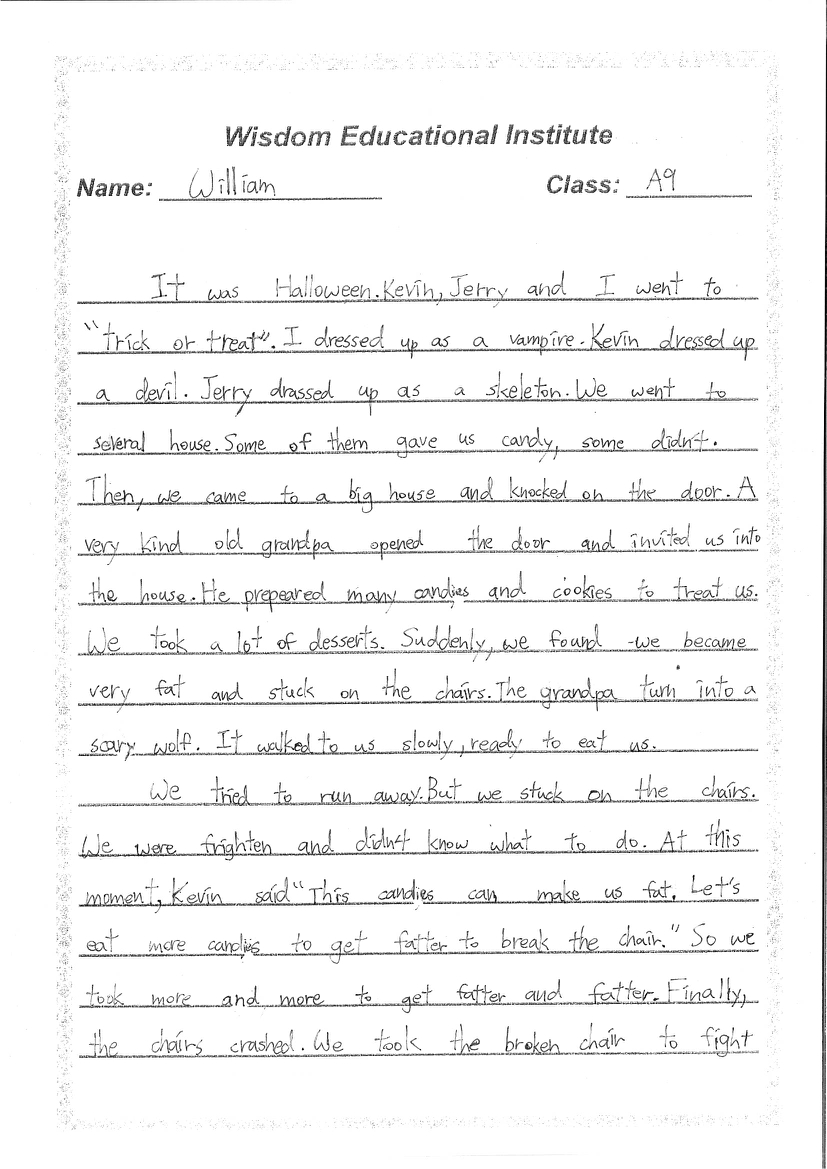 Wisdom Educational Institute
Name: William Class: A9
It was Halloween. Kevin, Jerry and I went to
"trick or treat". I dressed up as a vampire. Kevin dressed up
a devil. Jerry drassed up as a skeleton. We went to
several house. Some of them gave us candy, some didn't.
Then, we came to a big house and knocked on the door. A
very kind old grandpa opened the door and invited us into
the house. He prepeared many candies and cookies to treat us.
We took a lot of desserts. Suddenly, we found we became
very fat and stuck on the chairs. The grandpa turn into a
scary wolf. It walked to us slowly, ready to eat us.
We tried to run away. But we stuck on the chairs.
We were frighten and didn't know what to do. At this
moment, Kevin said "This candies can make us fat. Let's
eat more candies to get fatter to break the chair." So we
took more and more to get fatter and fatter. Finally,
the chairs crashed. We took the broken chair to fight